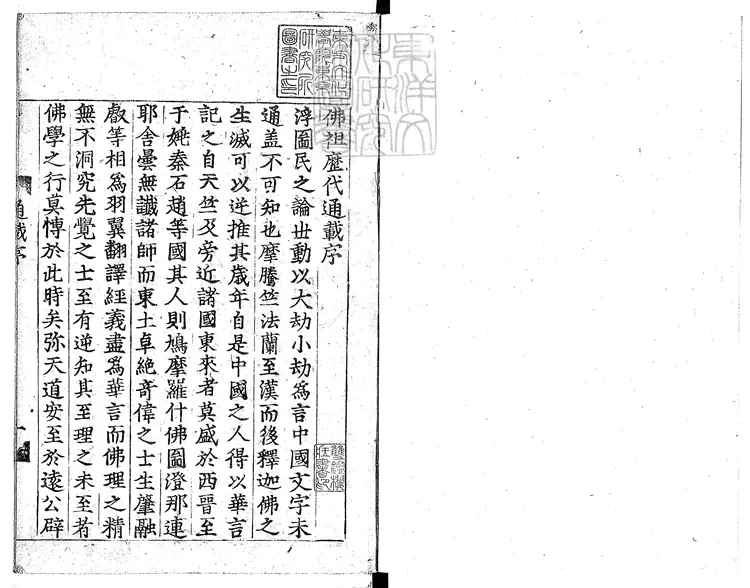 佛祖歷代通載序
浮圖氏之論世動以大劫小劫爲言中國文字未
通盖不可知也摩騰竺法蘭至漢而後釋迦佛之
生滅可以逆推其歲年自是中國之人得以華言
記之自天竺及旁近諸國東來者莫盛於西晋至
于姚秦石趙等國其人則鳩摩羅什佛圖澄那連
耶舍曇無讖諸師而東土卓絶竒偉之士生肇融
叡等相爲羽翼翻譯經義盡爲華言而佛理之精
無不洞究先覺之士至有逆知其至理之未至者
佛學之行莫愽於此時矣弥天道安至於遠公辟
通載序
一